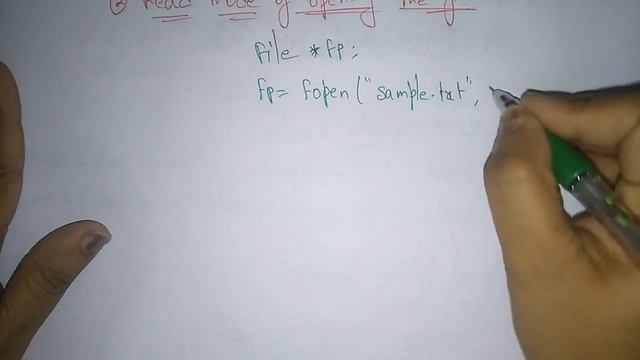 ② Read Mode of opening the
File *fp;
fp= fopen ("sample.txt",